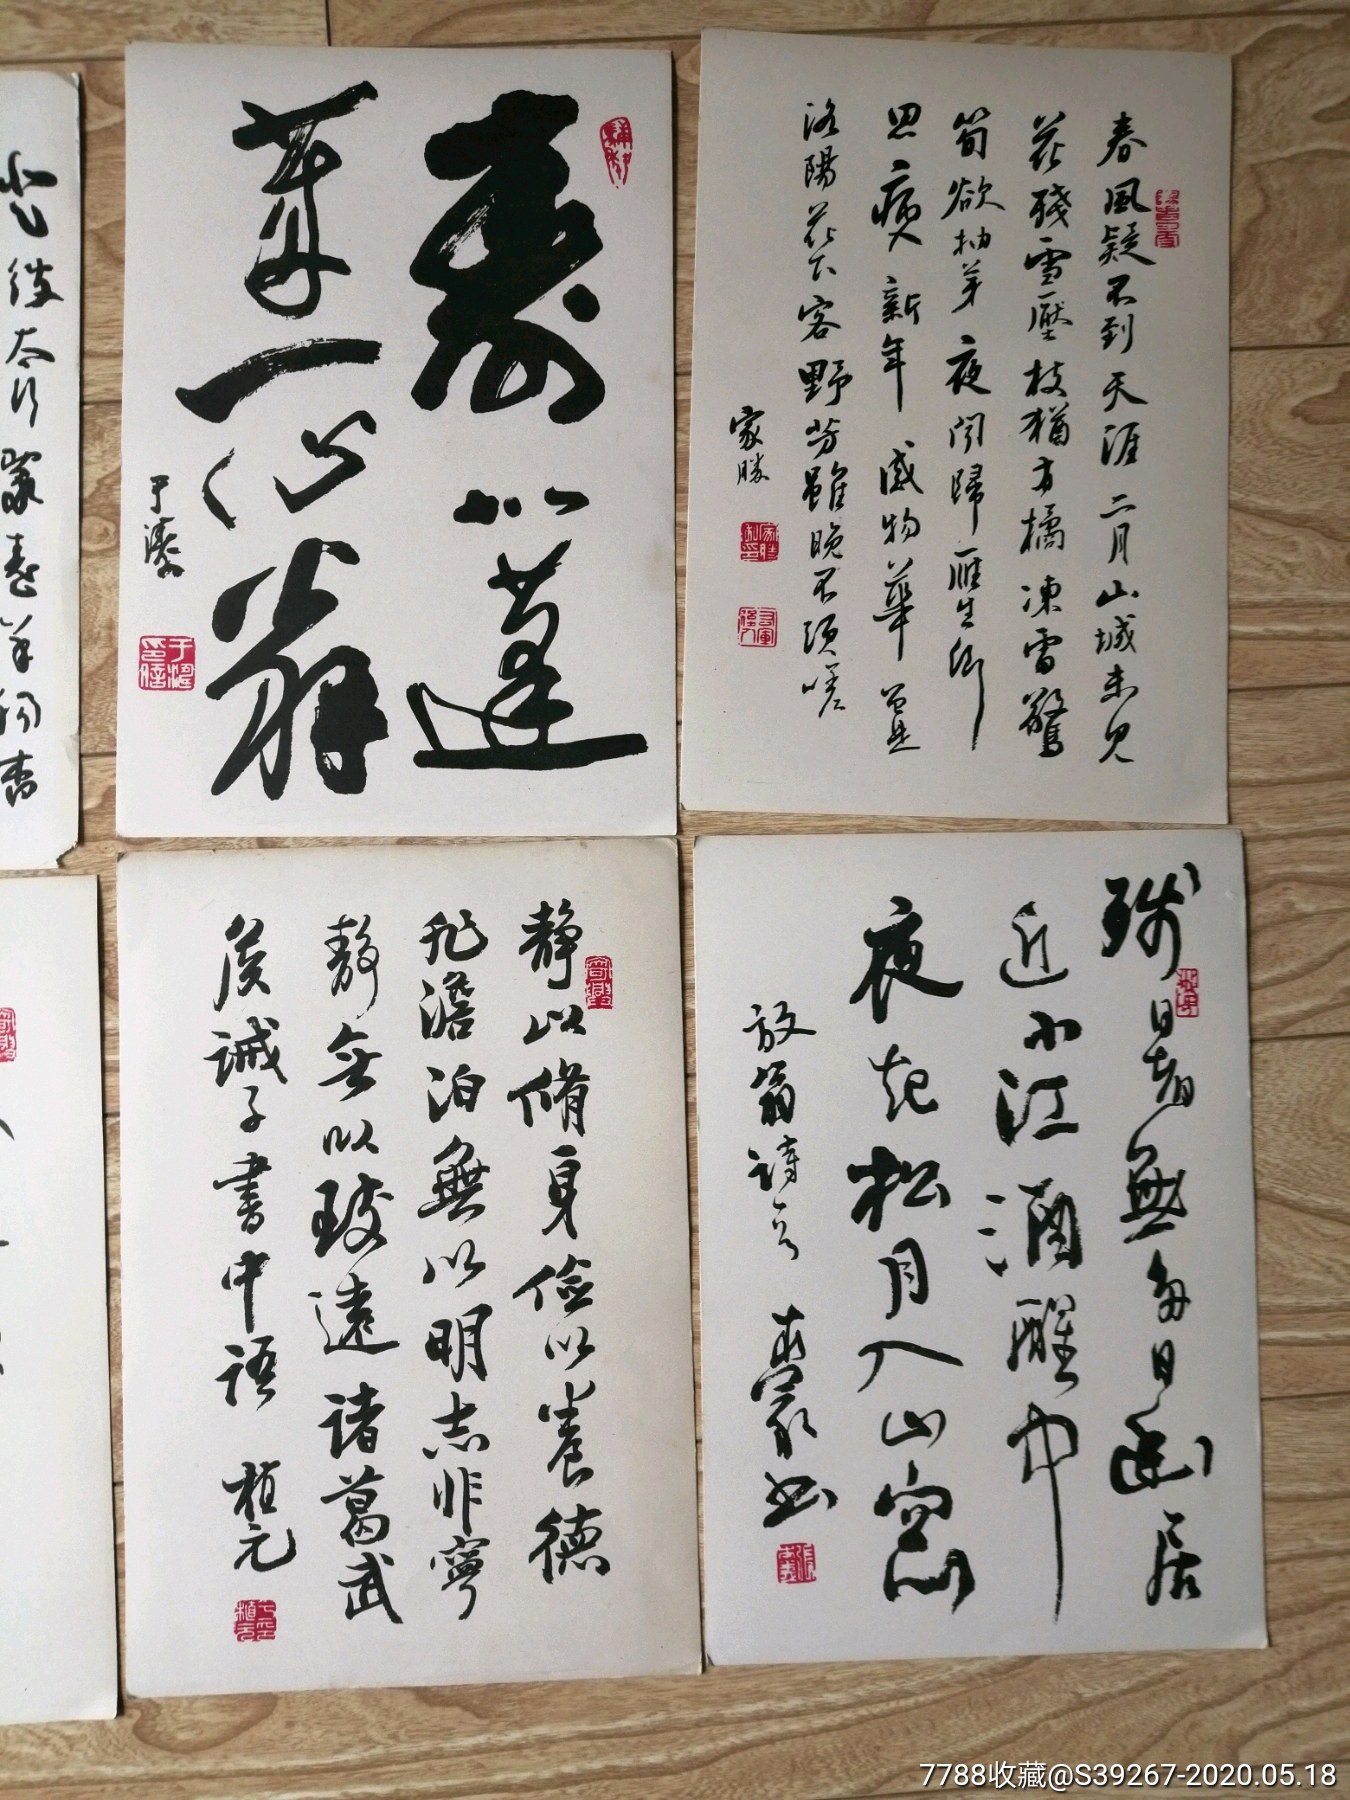 蓬
莱一
于濤
春風疑不到天涯二月山城未見
花殘雪壓枝猶有橘凍雷驚
筍欲抽芽夜聞歸雁生鄉
思病入新年感物華曾是
洛陽花下客野芳雖晚不須嗟
家勝
静以脩身儉以養德
非澹泊無以明志非寧
静無以致遠諸葛武
侯誡子書中語 植元
殘暑無多日幽居
近小江酒醒中
夜起松月入山窗
放翁詩句
7788收藏@S39267-2020.05.18